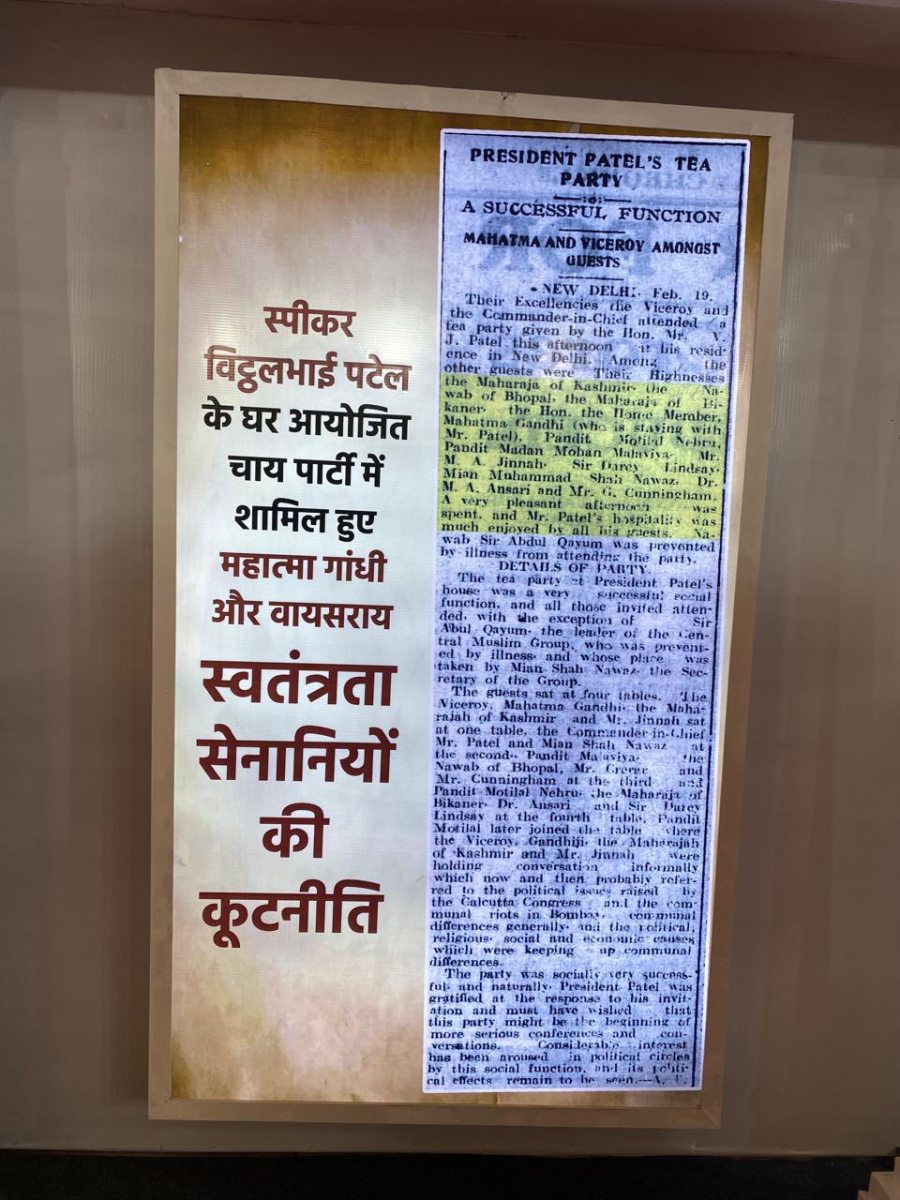 स्पीकर
विट्ठलभाई पटेल
के घर आयोजित
चाय पार्टी में
शामिल हुए
महात्मा गांधी
और वायसराय
स्वतंत्रता
सेनानियों
की
कूटनीति
PRESIDENT PATEL'S TEA
PARTY
A SUCCESSFUL FUNCTION
MAHATMA AND VICEROY AMONGST
GUESTS
NEW DELHI, Feb. 19.
Their Excellencies the Viceroy and
the Commander-in-Chief attended a
tea party given by the Hon. Mr. V.
J. Patel this afternoon at his resid-
ence in New Delhi. Among the
other guests were Their Highnesses
the Maharaja of Kashmir the Na-
wab of Bhopal, the Maharaja of Bi-
kaner, the Hon. the Home Member,
Mahatma Gandhi (who is staying with
Mr. Patel), Pandit Motilal Nehru,
Pandit Madan Mohan Malaviya, Mr.
M. A. Jinnah, Sir Darcy Lindsay,
Mian Muhammad Shah Nawaz, Dr.
M. A. Ansari and Mr. G. Cunningham.
A very pleasant afternoon was
spent, and Mr. Patel's hospitality was
much enjoyed by all his guests. Na-
wab Sir Abdul Qayum was prevented
by illness from attending the party.
DETAILS OF PARTY
The tea party at President Patel's
house was a very successful social
function, and all those invited atten-
ded, with the exception of Sir
Abul Qayum, the leader of the Cen-
tral Muslim Group, who was prevent-
ed by illness and whose place was
taken by Mian Shah Nawaz, the Sec-
retary of the Group.
The guests sat at four tables. The
Viceroy, Mahatma Gandhi, the Maha-
rajah of Kashmir and Mr. Jinnah sat
at one table, the Commander-in-Chief
Mr. Patel and Mian Shah Nawaz at
the second, Pandit Malaviya, the
Nawab of Bhopal, Mr. Crerar and
Mr. Cunningham at the third and
Pandit Motilal Nehru, the Maharaja of
Bikaner, Dr. Ansari and Sir Darcy
Lindsay at the fourth table. Pandit
Motilal later joined the table where
the Viceroy, Gandhiji, the Maharajah
of Kashmir and Mr. Jinnah were
holding conversation informally
which now and then probably refer-
red to the political issues raised by
the Calcutta Congress and the com-
munal riots in Bombay, communal
differences generally and the political,
religious, social and economic causes
which were keeping up communal
differences.
The party was socially very success-
ful and naturally President Patel was
gratified at the response to his invit-
ation and must have wished that
this party might be the beginning of
more serious conferences and con-
versations. Considerable interest
has been aroused in political circles
by this social function, and its politi-
cal effects remain to be seen.—A.